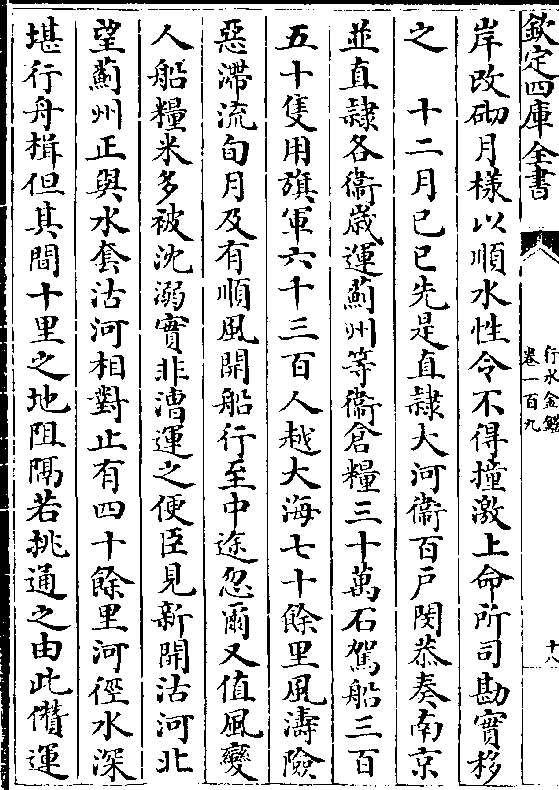 欽定四庫全書
行水金鑑
卷一百九
十八
岸改砌月様以順水性令不得撞激上命所司勘實移
之　十二月己巳先是直隷大河衞百戸閔恭奏南京
並直隷各衞歲運薊州等衞倉糧三十萬石駕船三百
五十隻用旗軍六千三百人越大海七十餘里風濤險
惡滯流旬月及有順風開船行至中途忽爾又值風變
人船糧米多被沈溺實非漕運之便臣見新開沽河北
望薊州正與水套沽河相對止有四十餘里河徑水深
堪行舟楫但其間十里之地阻隔若挑通之由此儹運